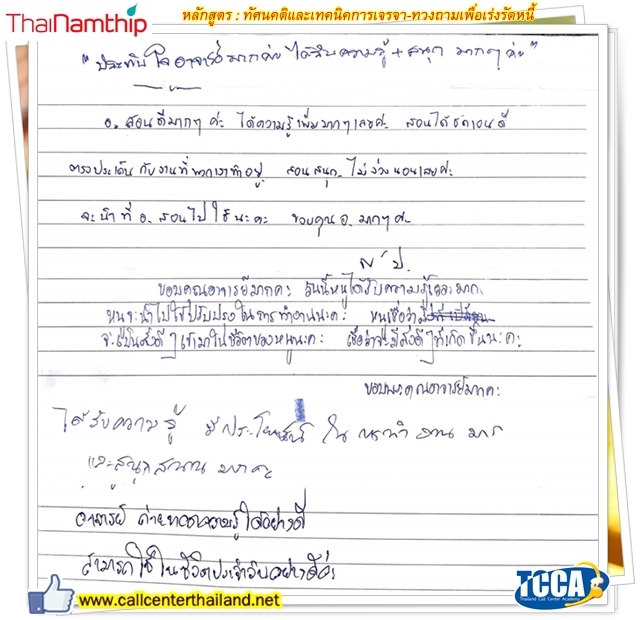 ThaiNamthip
หลักสูตร : ทัศนคติและเทคนิคการเจรจา-ทวงถามเพื่อเร่งรัดหนี้
"ประทับใจอาจารย์มากค่ะ ได้รับความรู้ + สนุก มากๆ ค่ะ"
อ. สอนดีมากๆ ค่ะ ได้ความรู้เพิ่มมากๆ เลยค่ะ สอนได้ชัดเจนดี
ตรงประเด็นกับงานที่พวกเราทำอยู่ สอนสนุก ไม่ง่วงนอนเลยค่ะ
จะนำที่ อ. สอนไปใช้นะคะ ขอบคุณ อ. มากๆ ค่ะ
ขอบคุณอาจารย์มากค่ะ วันนี้หนูได้รับความรู้เยอะมาก
หนูจะนำไปใช้ปรับปรุงในการทำงานนะคะ หนูเชื่อว่า
จะเป็นสิ่งดีๆ เข้ามาในชีวิตของหนูนะคะ เชื่อว่าจะมีสิ่งดีๆ ที่เกิดขึ้นนะคะ
ขอบพระคุณอาจารย์มากค่ะ
ได้รับความรู้ มีประโยชน์ ในการทำงาน มาก
และสนุกสนาน มากค่ะ
อาจารย์ ถ่ายทอดความรู้ได้อย่างดี
สามารถใช้ในชีวิตประจำวันอย่างดีค่ะ
www.callcenterthailand.net
TCCA
Thailand Call Center Academy